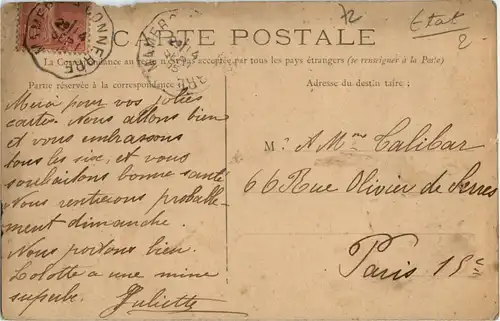 72
Etat
2
MAMERS A CONNERRE
CARTE POSTALE
La Correspondance au recto n'est pas acceptée par tous les pays étrangers (se renseigner à la Poste)
Partie réservée à la correspondance
Adresse du destinataire :
Merci pour vos jolies
cartes. Nous allons bien
et vous embrassons
tous les six, et vous
souhaitons bonne santé
Nous rentrerons probable-
ment dimanche.
Nous portons bien.
Lolotte a une mine
superbe. Juliette
M. A Mme Calibar
66 Rue Olivier de Serres
Paris 15e